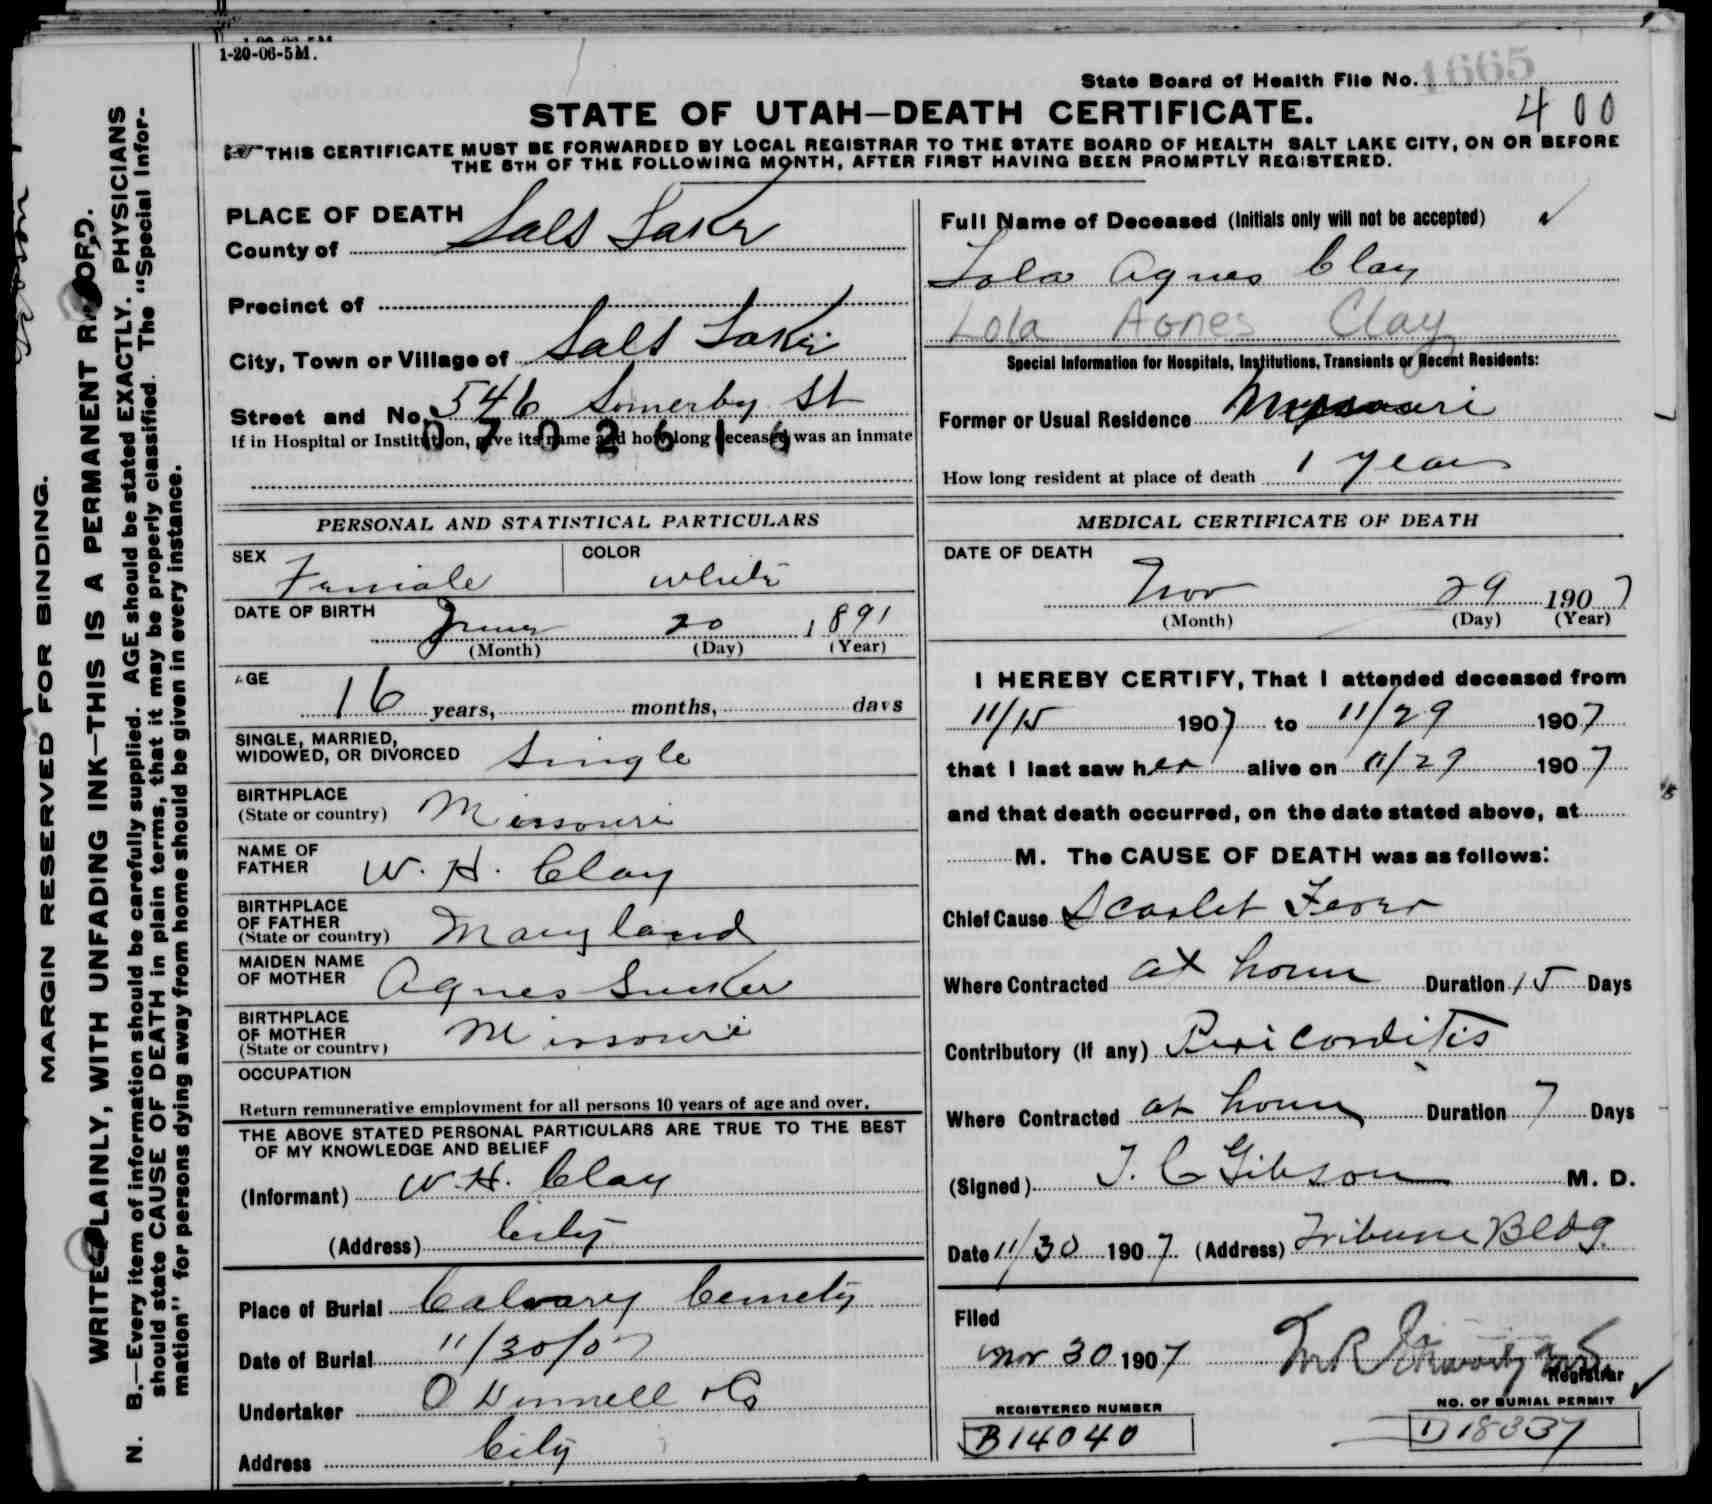 1-20-06-5M.
State Board of Health File No. 1665
STATE OF UTAH—DEATH CERTIFICATE.
400
THIS CERTIFICATE MUST BE FORWARDED BY LOCAL REGISTRAR TO THE STATE BOARD OF HEALTH SALT LAKE CITY, ON OR BEFORE
THE 5TH OF THE FOLLOWING MONTH, AFTER FIRST HAVING BEEN PROMPTLY REGISTERED.
MARGIN RESERVED FOR BINDING.
WRITE PLAINLY, WITH UNFADING INK—THIS IS A PERMANENT RECORD.
N. B.—Every item of information should be carefully supplied. AGE should be stated EXACTLY. PHYSICIANS
should state CAUSE OF DEATH in plain terms, that it may be properly classified. The "Special Infor-
mation" for persons dying away from home should be given in every instance.
PLACE OF DEATH
County of Salt Lake
Precinct of
City, Town or Village of Salt Lake
Street and No. 546 Somerby St
If in Hospital or Institution, give its name and how long deceased was an inmate
0702616
PERSONAL AND STATISTICAL PARTICULARS
SEX Female COLOR White
DATE OF BIRTH June 20 1891
(Month) (Day) (Year)
AGE
16 years, months, days
SINGLE, MARRIED,
WIDOWED, OR DIVORCED Single
BIRTHPLACE
(State or country) Missouri
NAME OF
FATHER W. H. Clay
BIRTHPLACE
OF FATHER
(State or country) Maryland
MAIDEN NAME
OF MOTHER Agnes
BIRTHPLACE
OF MOTHER
(State or country) Missouri
OCCUPATION
Return remunerative employment for all persons 10 years of age and over.
THE ABOVE STATED PERSONAL PARTICULARS ARE TRUE TO THE BEST
OF MY KNOWLEDGE AND BELIEF
(Informant) W. H. Clay
(Address) City
Place of Burial Calvary Cemety
Date of Burial 11/30/07
Undertaker O Donnell & Co
Address City
Full Name of Deceased (Initials only will not be accepted)
Lola Agnes Clay
Lola Agnes Clay
Special Information for Hospitals, Institutions, Transients or Recent Residents:
Former or Usual Residence Missouri
How long resident at place of death 1 year
MEDICAL CERTIFICATE OF DEATH
DATE OF DEATH
Nov 29 1907
(Month) (Day) (Year)
I HEREBY CERTIFY, That I attended deceased from
11/15 1907 to 11/29 1907
that I last saw her alive on 11/29 1907
and that death occurred, on the date stated above, at
M. The CAUSE OF DEATH was as follows:
Chief Cause Scarlet Fever
Where Contracted at home Duration 15 Days
Contributory (if any) Pericarditis
Where Contracted at home Duration 7 Days
(Signed) T. C Gibson M. D.
Date 11/30 1907 (Address) Tribune Bldg.
Filed
Nov 30 1907
Registrar
REGISTERED NUMBER
B14040
NO. OF BURIAL PERMIT
D18337